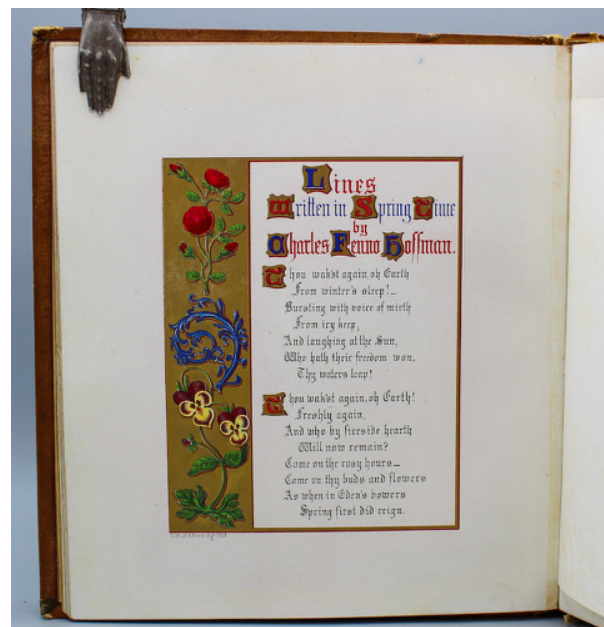 Lines
Written in Spring Time
by
Charles Fenno Hoffman.
Thou wak'st again, oh Earth
From winter's sleep!—
Bursting with voice of mirth
From icy keep,
And laughing at the Sun,
Who hath their freedom won,
Thy waters leap!
Thou wak'st again, oh Earth!
Freshly again,
And who by fireside hearth
Will now remain?
Come on the rosy hours—
Come on thy buds and flowers
As when in Eden's bowers
Spring first did reign.